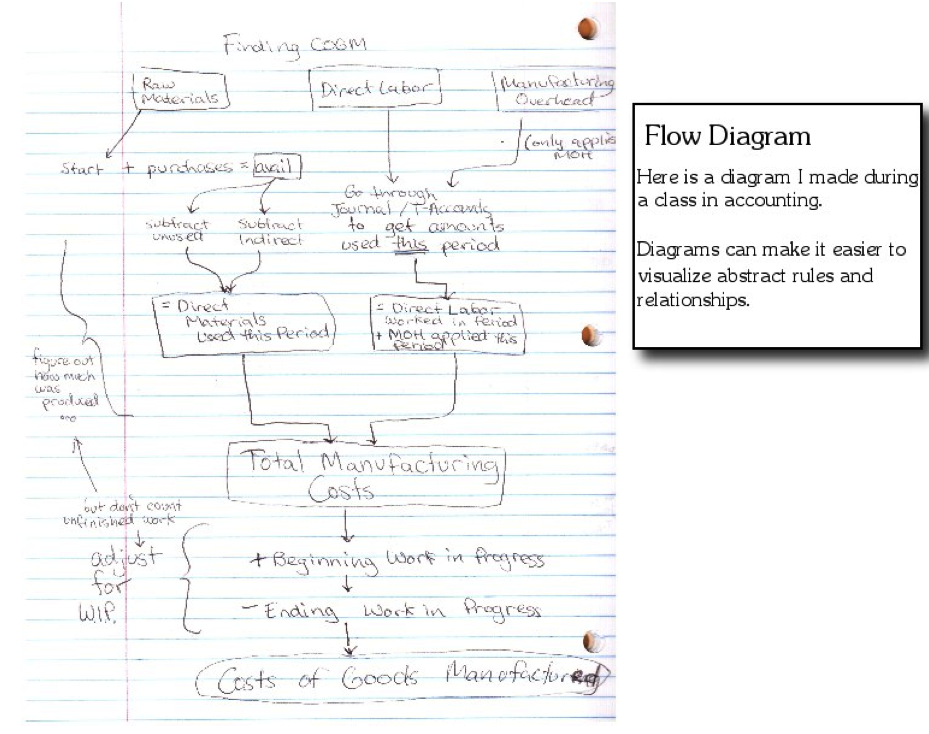 Finding COGM
Raw
Materials
Direct Labor
Manufacturing
Overhead
(only applied
MOH
Start + purchases = avail
subtract
unused
Subtract
Indirect
Go through
Journal / T-Accounts
to get amounts
used this period
= Direct
Materials
Used this Period
= Direct Labor
worked in Period
+ MOH applied this
Period
figure out
how much
was
produced
...
Total Manufacturing
Costs
but don't count
unfinished work
adjust
for
W.I.P.
+ Beginning Work in Progress
- Ending Work in Progress
Costs of Goods Manufactured
Flow Diagram
Here is a diagram I made during
a class in accounting.
Diagrams can make it easier to
visualize abstract rules and
relationships.